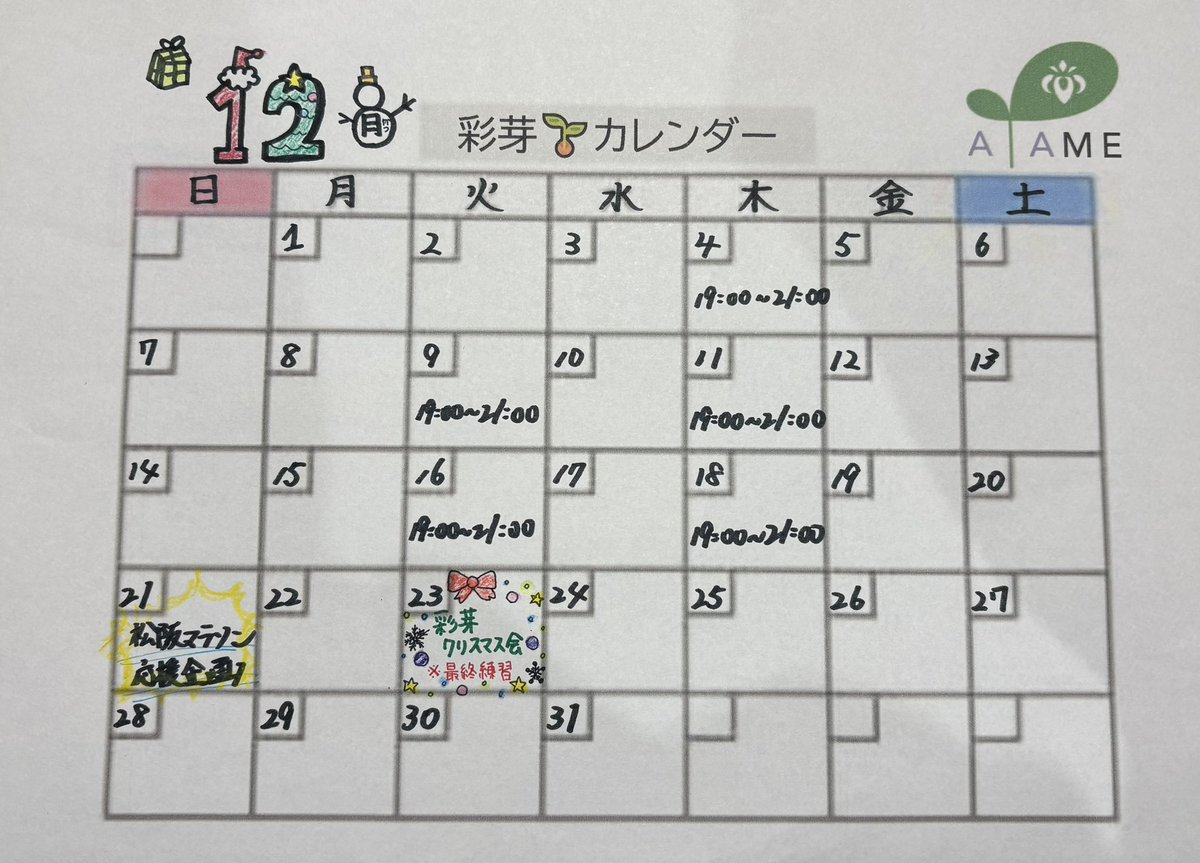 12月
がつ
彩芽カレンダー
AYAME
日 月 火 水 木 金 土
1 2 3 4 5 6
19:00~21:00
7 8 9 10 11 12 13
19:00~21:00 19:00~21:00
14 15 16 17 18 19 20
19:00~21:00 19:00~21:00
21 22 23 24 25 26 27
松阪マラソン
応援企画!
彩芽
クリスマス会
※最終練習
28 29 30 31